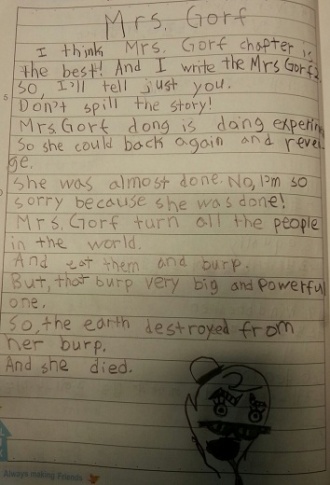 Mrs. Gorf
I think Mrs. Gorf chapter is
the best! And I write the Mrs Gorf 2
so, I'll tell just you.
Don't spill the story!
Mrs. Gorf dong is doing experim
So she could back again and reve
ge.
She was almost done. No, I'm so
sorry because she was done!
Mrs. Gorf turn all the people
in the world.
And eat them and burp.
But, that burp very big and powerful
one.
So, the earth destroyed from
her burp.
And she died.
5
Always making Friends